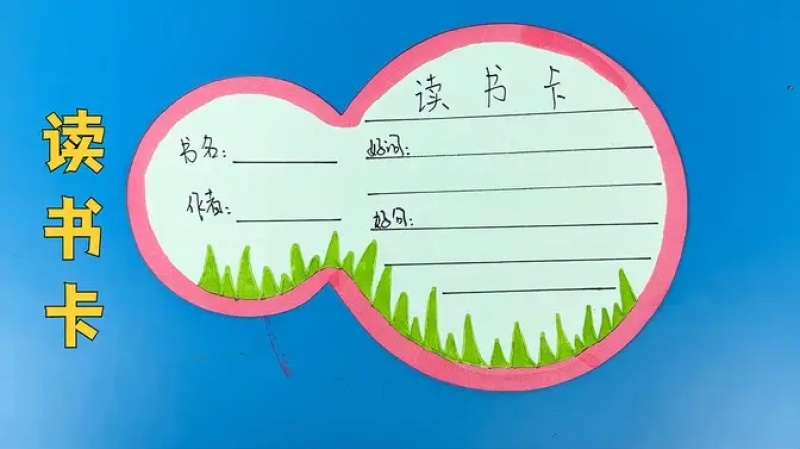 读书卡
读书卡
书名：
作者：
好词：
好句：